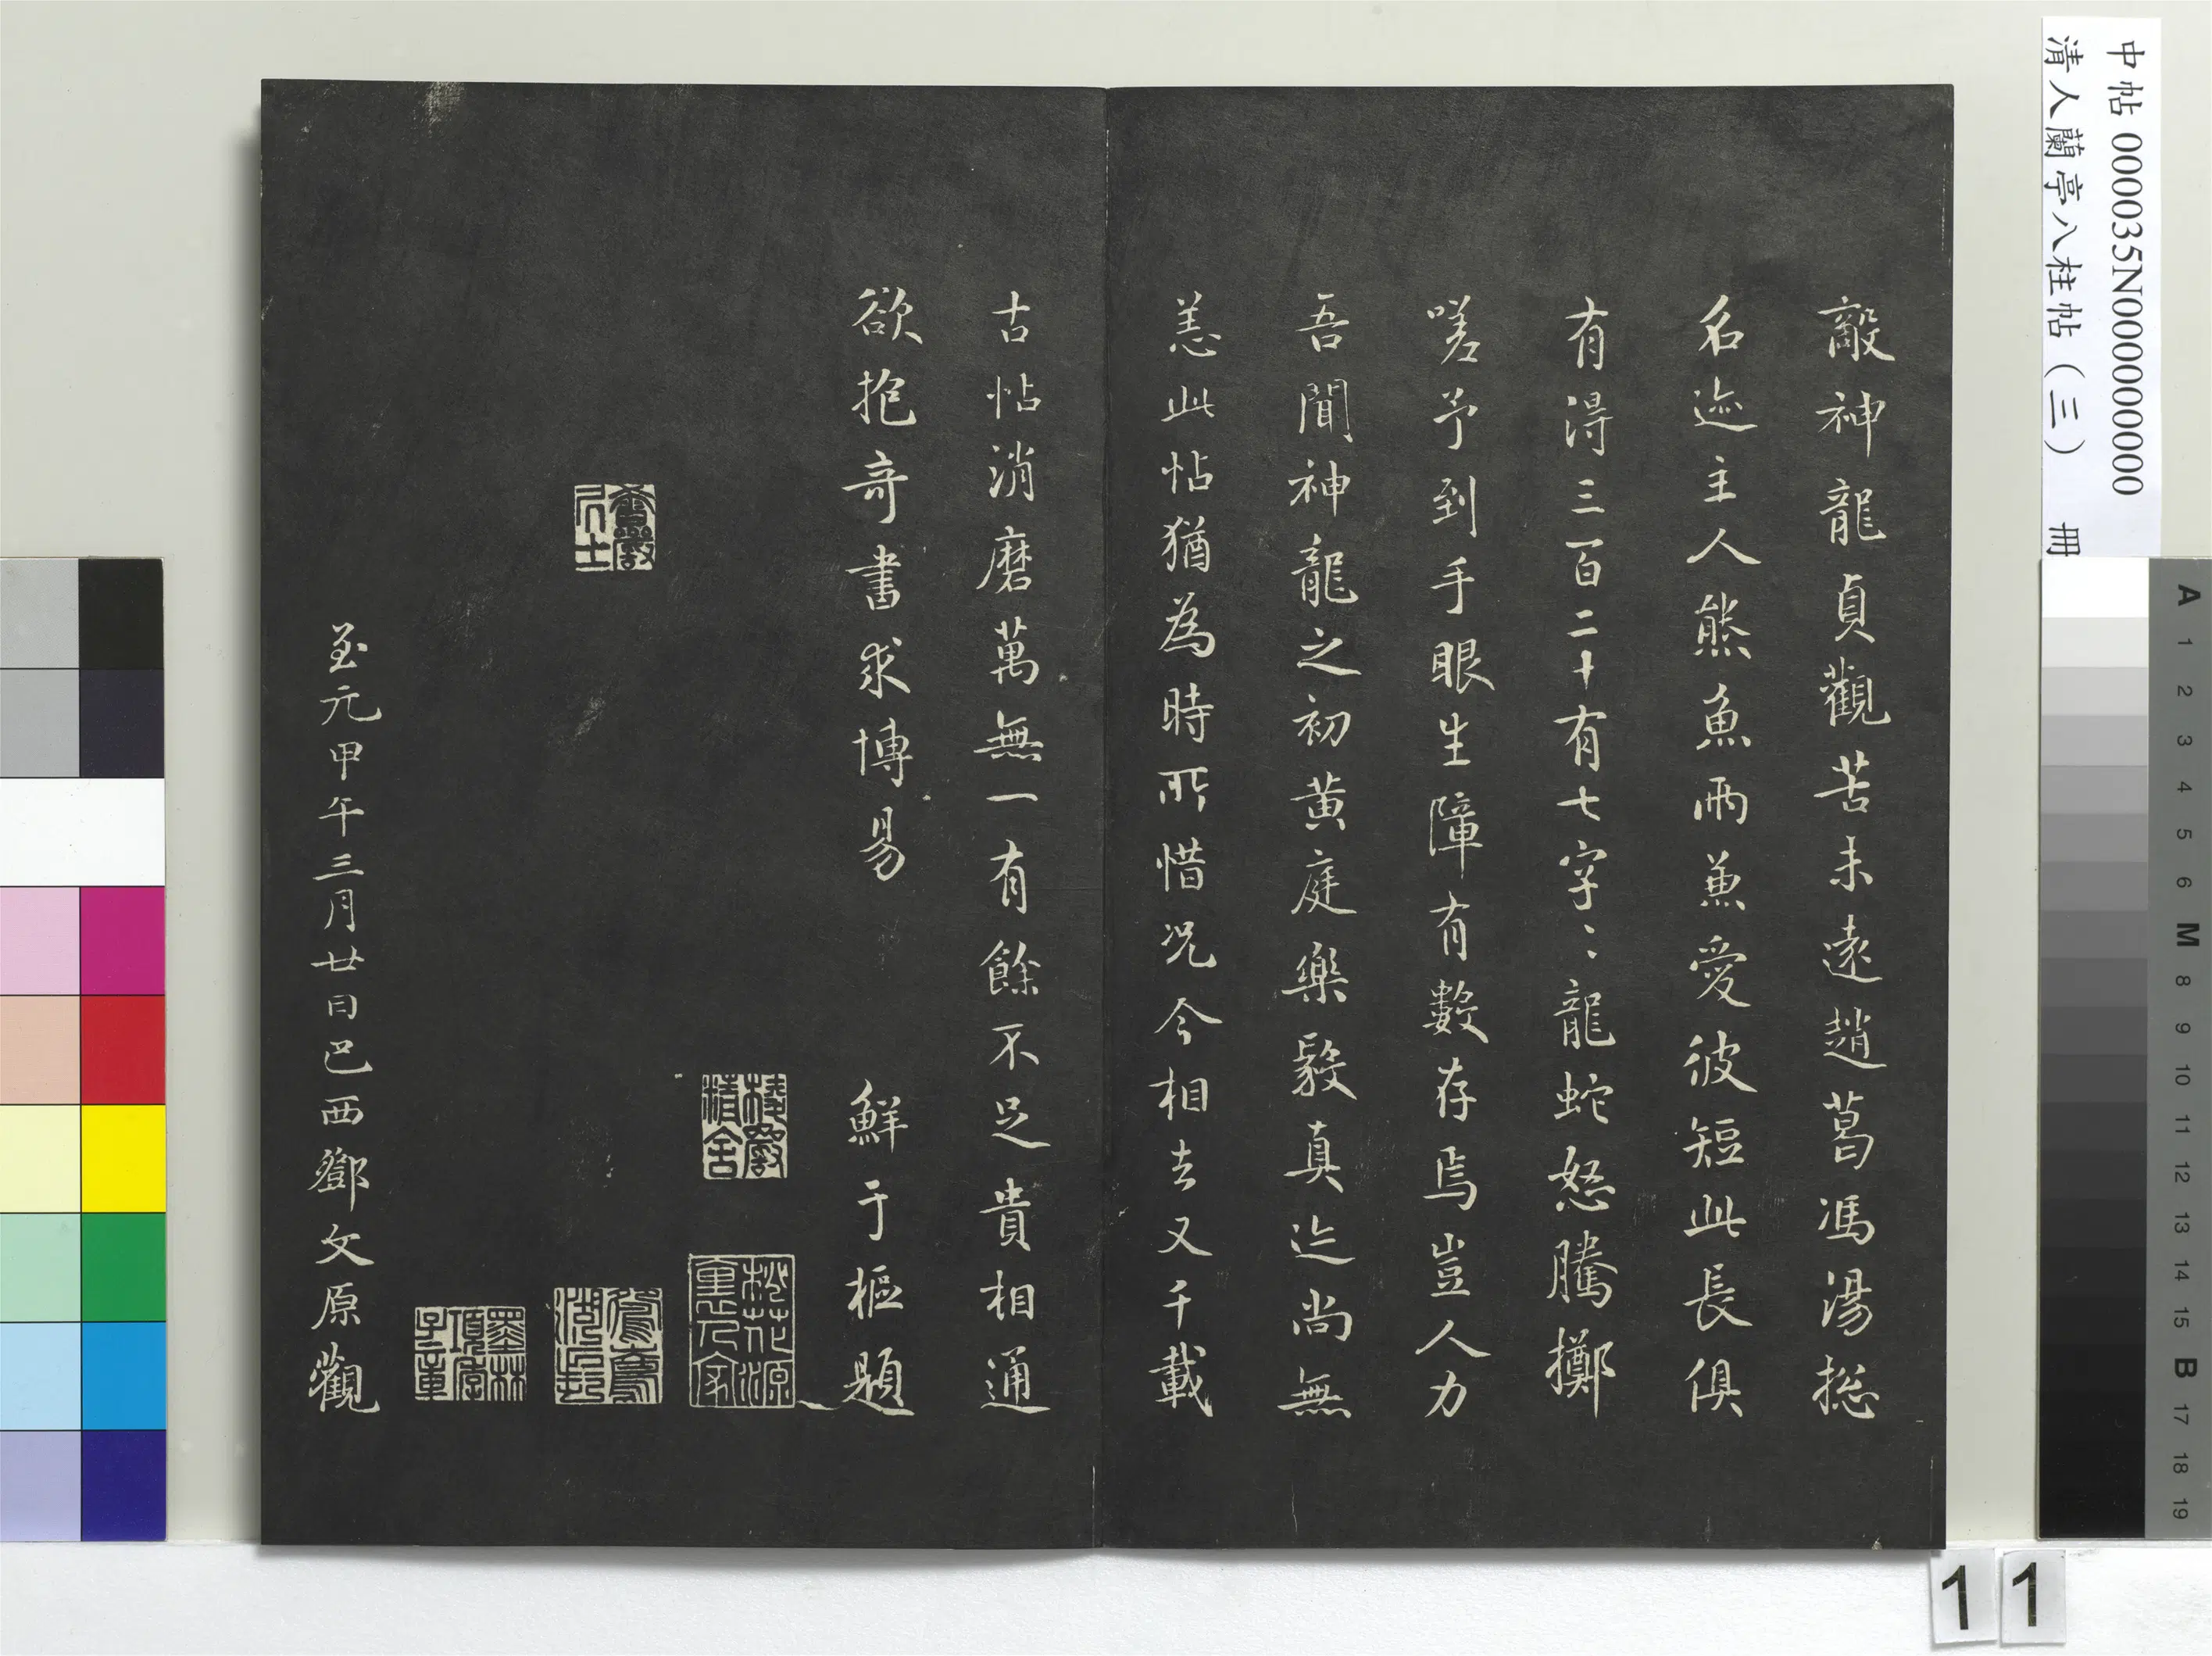 中帖 000035N000000000
清人蘭亭八柱帖（三） 冊
敵神龍貞觀苦未遠趙葛馮湯摠
名迹主人熊魚兩兼愛彼短此長俱
有淂三百二十有七字〻龍蛇怒騰擲
嗟予到手眼生障有數存焉豈人力
吾聞神龍之初黃庭樂毅真迹尚無
恙此帖猶為時所惜况今相去又千載
古帖消磨萬無一有餘不足貴相通
欲抱奇書求博易 鮮于樞題
棲霞精舍
松花源裏人家
鴛鴦湖長
墨林項季子章
至元甲午三月廿日巴西鄧文原觀
A 1 2 3 4 5 6 M 8 9 10 11 12 13 14 15 B 17 18 19
11